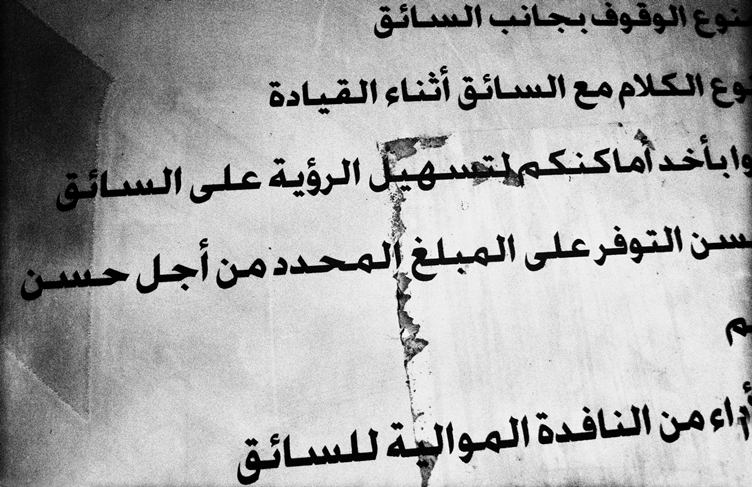 نوع الوقوف بجانب السائق
وع الكلام مع السائق أثناء القيادة
وا بأخد أماكنكم لتسهيل الرؤية على السائق
سن التوفر على المبلغ المحدد من أجل حسن
م
أداء من النافدة الموالية للسائق